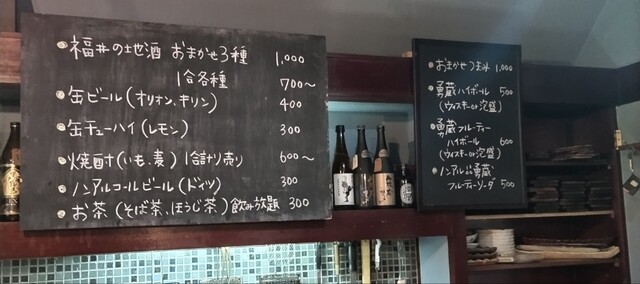 福井の地酒 おまかせ3種 1,000
1合各種 700〜
缶ビール(オリオン、キリン) 400
缶チューハイ(レモン) 300
焼酎(いも、麦) 1合計り売り 600〜
ノンアルコールビール(ドイツ) 300
お茶(そば茶、ほうじ茶)飲み放題 300
おまかせつまみ 1,000
勇蔵ハイボール 500
(ウィスキーor泡盛)
勇蔵フルーティー
ハイボール 600
(ウィスキーor泡盛)
ノンアル勇蔵
フルーティーソーダ 500